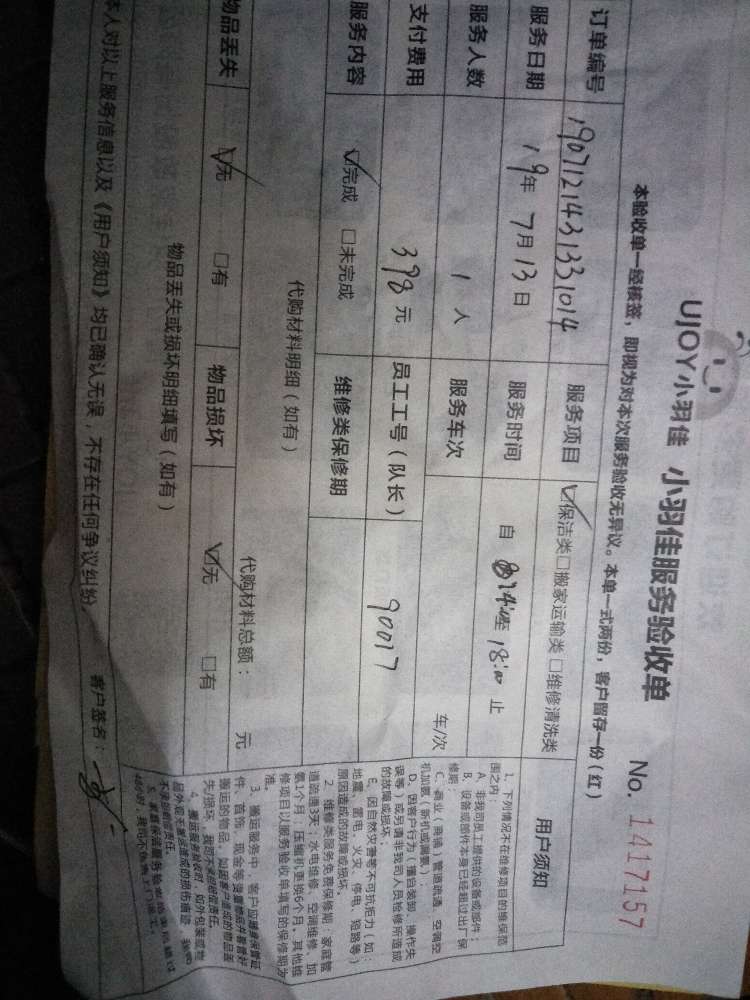 UJOY小羽佳 小羽佳服务验收单 No. 1417157
本验收单一经核签，即视为对本次服务验收无异议。本单一式两份，客户留存一份（红）
订单编号 190712143133​1014 服务项目 ☑保洁类□搬家运输类□维修清洗类
服务日期 19年 7月13日 服务时间 自 至 18:00 止
服务人数 1 人 服务车次 车/次
支付费用 398 元 员工工号（队长） 90017
服务内容 ☑完成 □未完成 维修类保修期
代购材料明细（如有）
代购材料总额： 元
物品丢失 ☑无 □有 物品损坏 ☑无 □有
物品丢失或损坏明细填写（如有）
本人对以上服务信息以及《用户须知》均已确认无误，不存在任何争议纠纷 客户签名：
用户须知
1、下列情况不在维修项目的维保范
围之内：
A、非我司员工提供的设备或部件；
B、设备或部件本身已经超过出厂保
修期；
C、商业（商铺）管道疏通、空调空
机加氨（新机或漏氨）；
D、因客户行为（擅自装卸、操作失
误等）或另请非我司人员检修所造成
的故障或损坏；
E、因自然灾害等不可抗拒力（如：
地震、雷电、火灾、停电、短路等）
原因造成的故障或损坏。
2、维修类服务免费保修期：家庭管
道疏通3天；水电维修、空调维修、加
氨1个月，压缩机更换6个月。其他维
修项目以服务验收单填写的保修期为
准。
3、搬运服务中，客户应
件、首饰、现金等贵重物品并看管好
搬运的物品，如因客户造成的物品丢
失/损坏，我司不承担赔偿责任。
4、